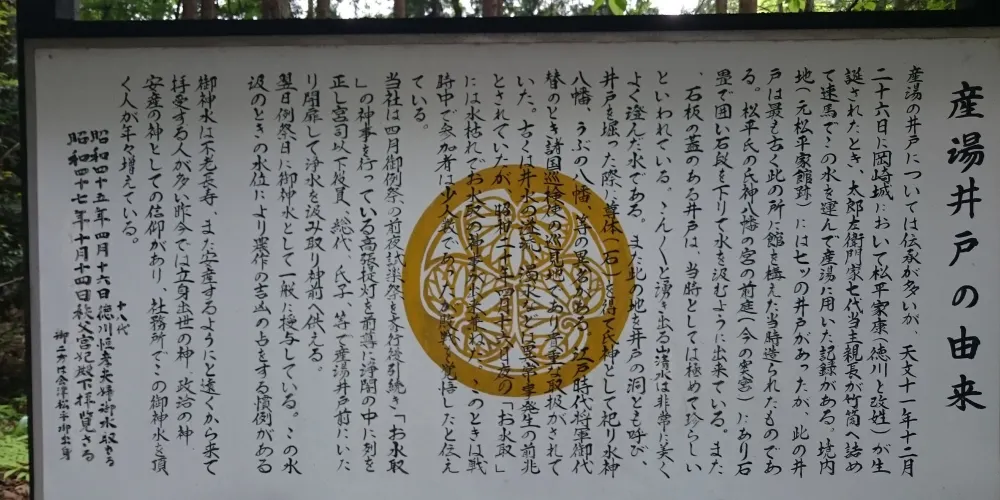 産湯井戸の由来
産湯の井戸については伝承が多いが、天文十一年十二月
二十六日に岡崎城において松平家康(徳川と改姓)が生
誕されたとき、太郎左衛門家七代当主親長が竹筒へ詰め
て速馬でこの水を運んで産湯に用いた記録がある。境内
地(元松平家館跡)には七ッの井戸があったが、此の井
戸は最も古く此の所に館を構えた当時造られたものであ
る。松平氏の氏神八幡の宮の前庭(今の奥宮)にあり石
畳で囲い石段を下りて水を汲むように出来ている。また
、石板の蓋のある井戸は、当時としては極めて珍らしい
といわれている。こんくと湧き出る山清水は非常に美く
よく澄んだ水である。また此の地を井戸の洞とも呼び、
井戸を掘った際、尊体(石)を得て氏神として祀り水神
八幡、うぶの八幡、等の異名がある。江戸時代将軍御代
替のとき諸国巡検使の巡見地であり貴重な取扱がされて
いた。古くは井水の増減、濁りなどは異常事発生の前兆
には水枯れでお水取の神事が出来ねた。このときは戦
時中で参加者は少人数であったが敗戦を覚悟したと伝え
ている。
当社は四月御例祭の前夜試楽祭を斉行後引続き「お水取
」の神事を行っている高張提灯を前導に浄闇の中に列を
正し宮司以下役員、総代、氏子、等で産湯井戸前にいた
り開扉して浄水を汲み取り神前へ供える。
翌日例祭日に御神水として一般に授与している。この水
汲のときの水位により農作の吉凶の占をする慣例がある
御神水は不老長寿、また安産するようにと遠くから来て
拝受する人が多い昨今では立身出世の神、政治の神
安産の神としての信仰があり、社務所でこの御神水を頂
く人が年々増えている。
昭和四十五年四月十六日十八代徳川恒孝夫婦御水取される
昭和四十七年十月十四日秩父宮妃殿下拝覧さる
御二方は会津松平御出身